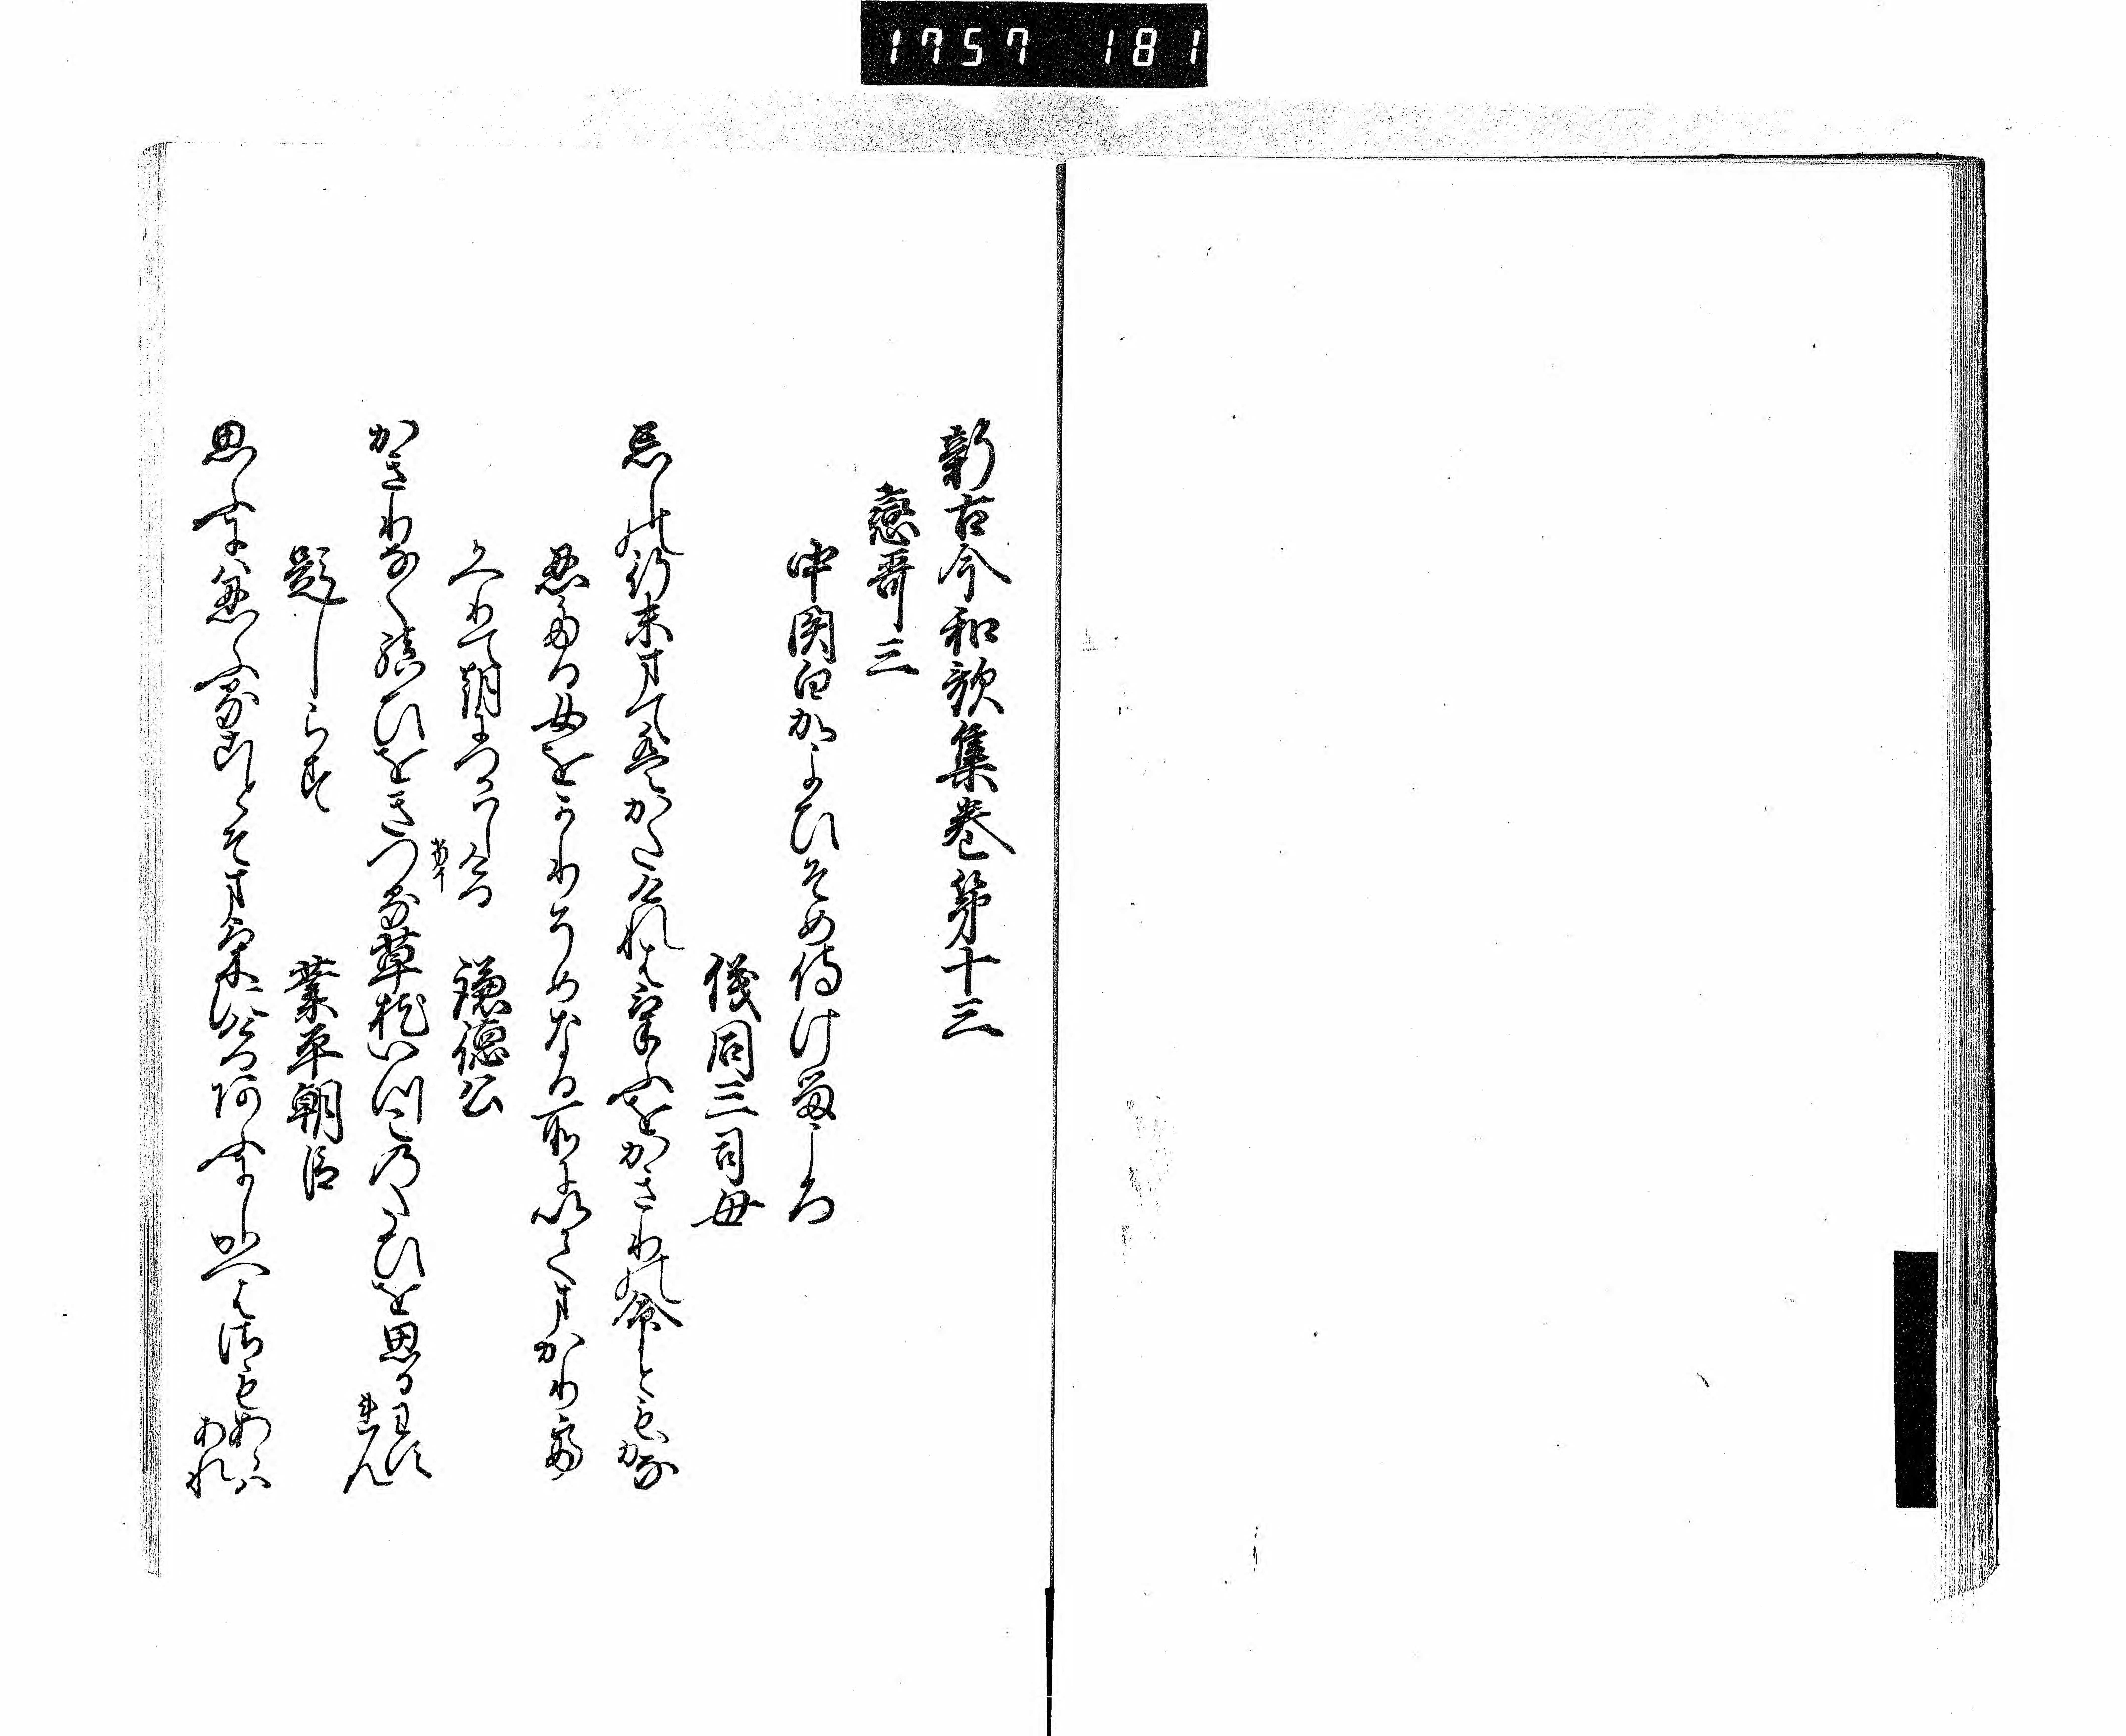 1757 181
新古今和歌集巻第十三
戀哥三
中関白かよひそめ侍けるころ
儀同三司母
忘しの行末まてはかたけれはけふをかきりの命ともかな
忍たる女をかりそめなる所にいてまかり
てかへりて朝につかはしける
謙徳公
かきりなく結ひをきつる草枕いつこのたひを思わすれん
題しらす
業平朝臣
思ふには忍ふることそまけにけるあふにしかへはさもあらはあれ